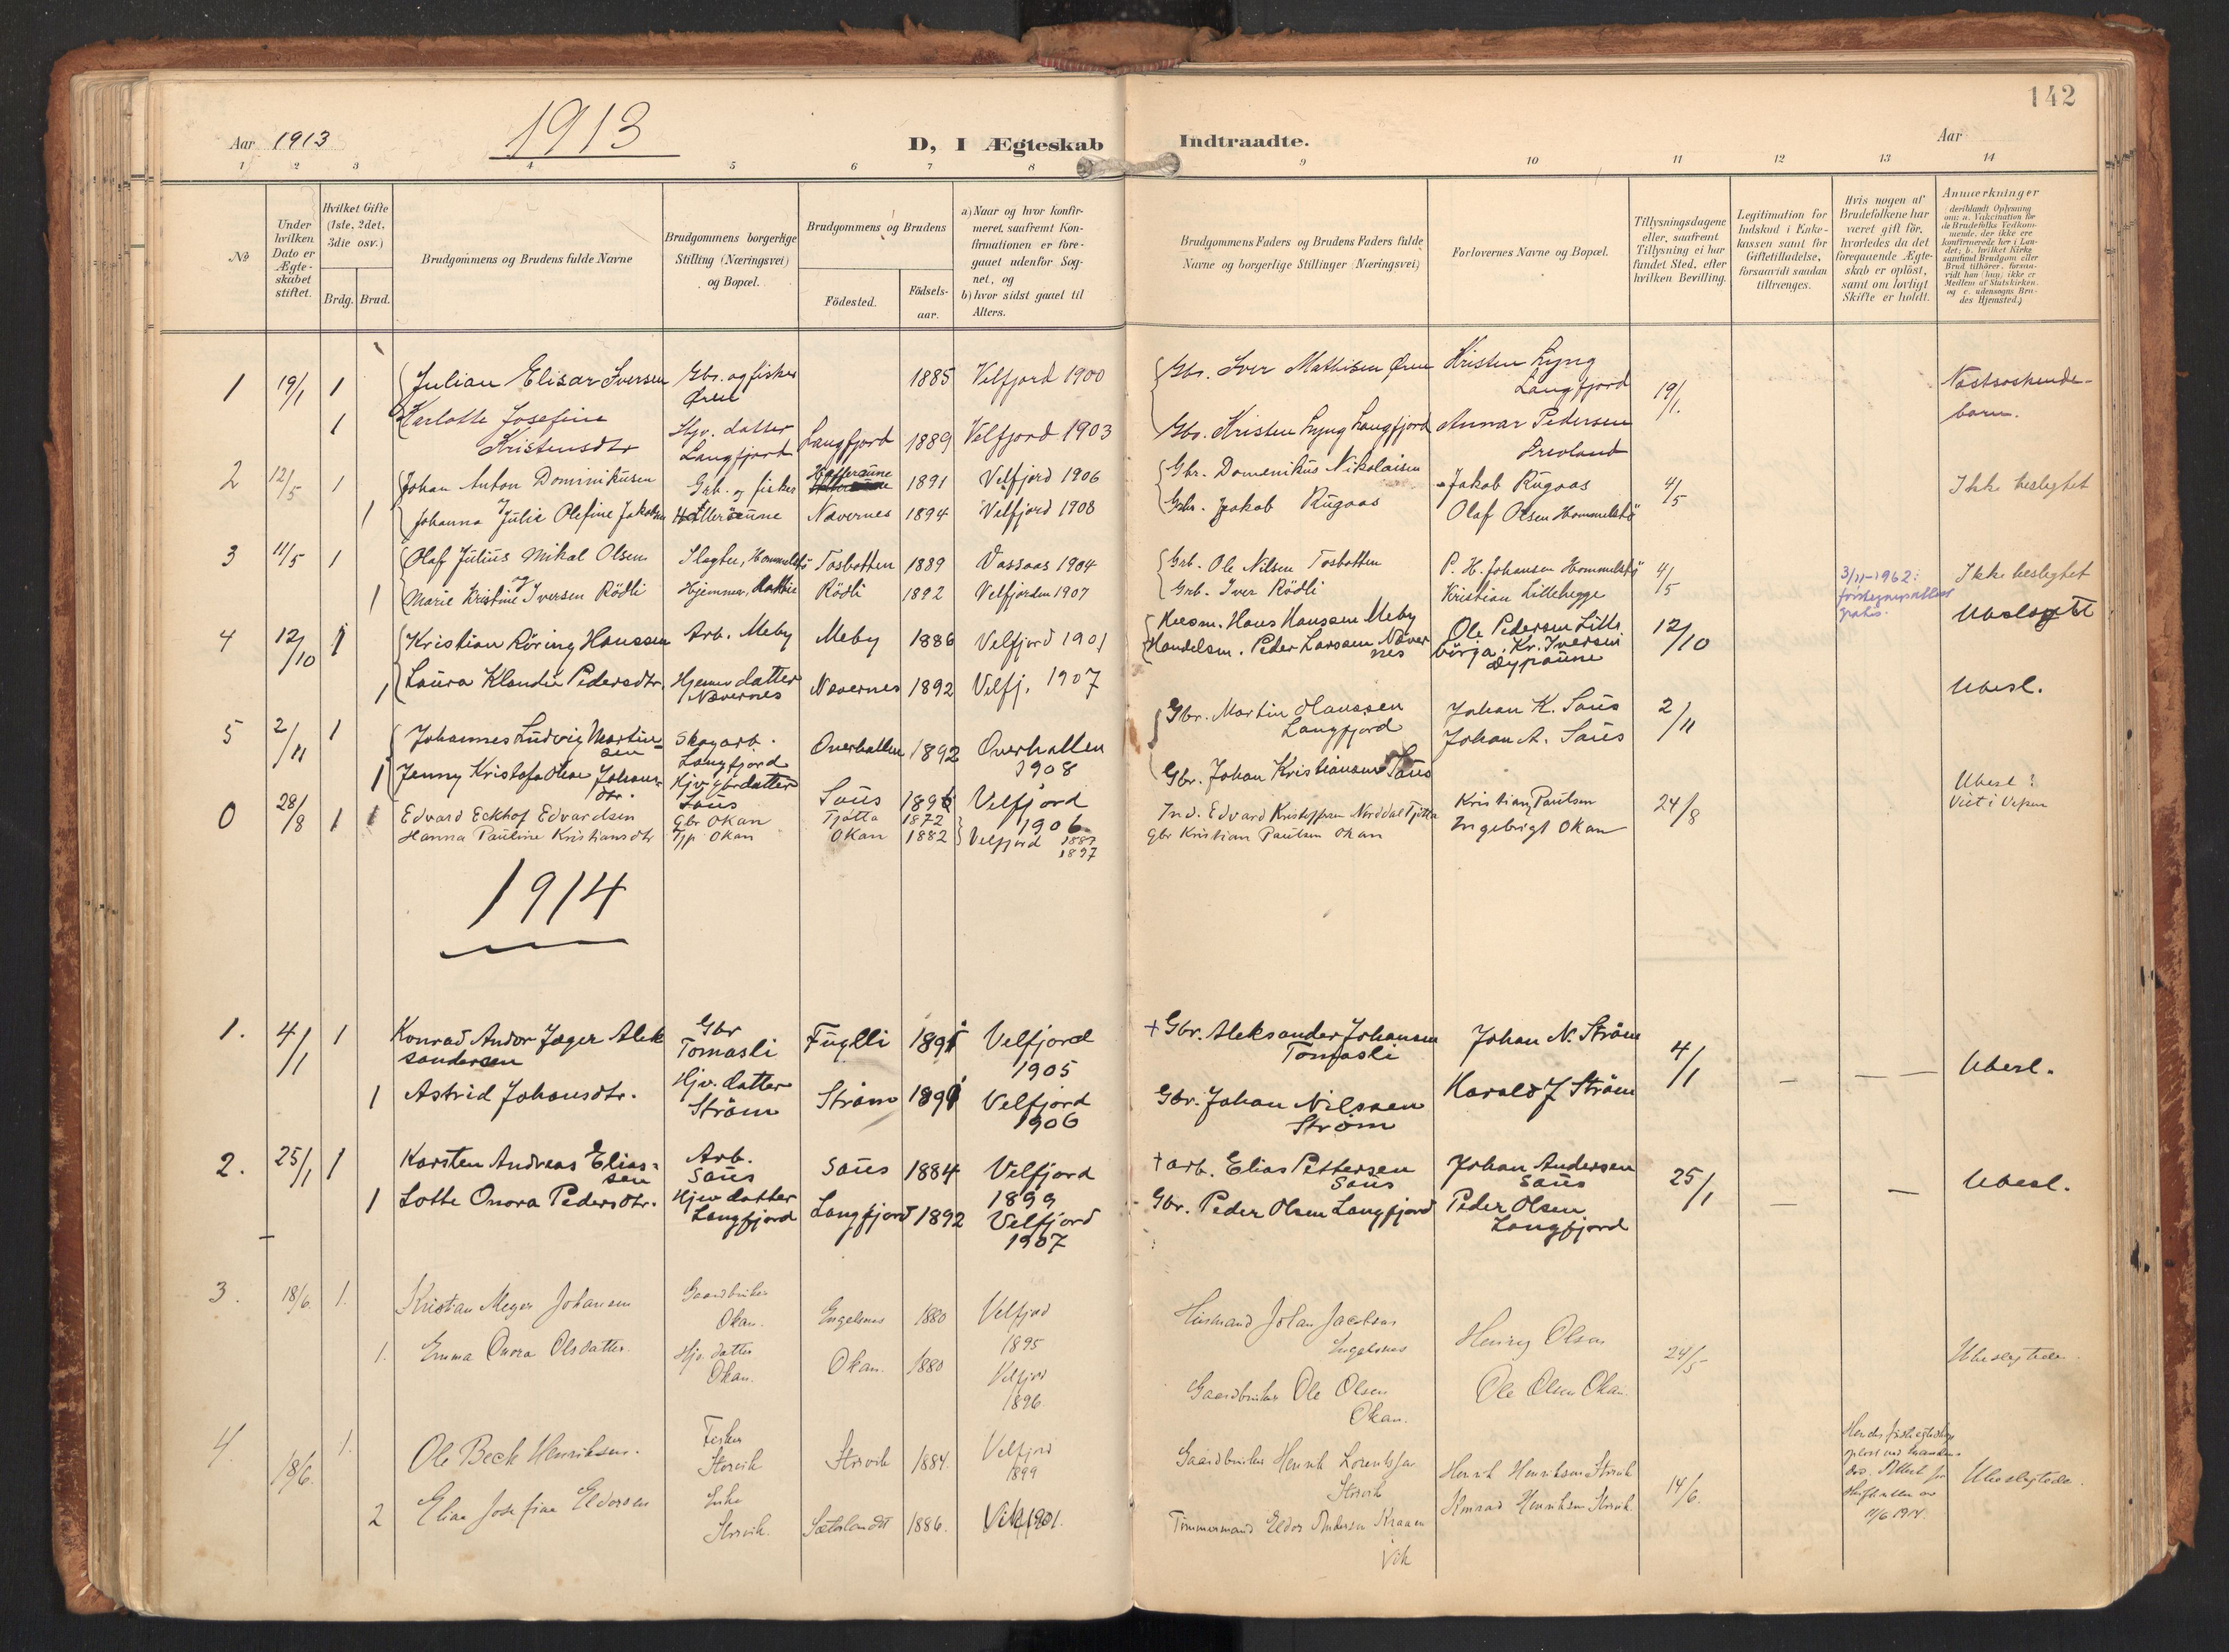 142
Aar 1913
1913
D, I Ægteskab Indtraadte.
Aar
1 2 3 4 5 6 7 8 9 10 11 12 13 14
No
Under hvilken Dato er Ægteskabet stiftet.
Hvilket Gifte (1ste, 2det, 3die osv.)
Brdg. Brud.
Brudgommens og Brudens fulde Navne
Brudgommens borgerlige Stilling (Næringsvei) og Bopæl.
Brudgommens og Brudens
Födested.
Födselsaar.
a) Naar og hvor konfirmeret, saafremt Konfirmationen er foregaaet udenfor Sognet, og
b) hvor sidst gaaet til Alters.
Brudgommens Faders og Brudens Faders fulde Navne og borgerlige Stillinger (Næringsvei)
Forlovernes Navne og Bopæl.
Tillysningsdagene eller, saafremt Tillysning ei har fundet Sted, efter hvilken Bevilling.
Legitimation for Indskud i Enkekassen samt for Giftetilladelse, forsaavidt saadan tiltrænges.
Hvis nogen af Brudefolkene har været gift för, hvorledes da det foregaaende Ægteskab er oplöst, samt om lovligt Skifte er holdt.
Anmærkninger
deriblandt Oplysning om: a. Vaksination for de Brudefolks Vedkommende, der ikke ere konfirmerede her i Landet; b. hvilket Kirkesamfund Brudgom eller Brud tilhörer, forsaavidt han (hun) ikke er Medlem af Statskirken, og c. udensogns Brudes Hjemsted.
1 19/1 1 Julian Elisar Iversen Gbr. og fisker 1885 Velfjord 1900 Gbr. Iver Mathisen Øren Kristen Lyng 19/1. Næstsøskende-
Øren Langfjord barn.
1 Karlotte Josefine Hjv. datter Langfjord 1889 Velfjord 1903 Gbr. Kristen Lyng Langfjord Annar Pedersen
Kristensdtr Langfjord
2 12/5 1 Johan Anton Dominikusen Grb. og fisker Hatteraune 1891 Velfjord 1906 Gbr. Domenikus Nikolaisen Jakob Rugaas 4/5 Ikke beslegtet
1 Johanna Julie Olefine Jakobsen Hatteraune Nævernes 1894 Velfjord 1908 Gbr. Jakob Rugaas Olaf Olsen Hommelstö
3 11/5 1 Olaf Julius Mikal Olsen Slagter, Hommelstö Tosbotten 1889 Vassaas 1904 Grb. Ole Nilsen Tosbotten P. H. Johansen Hommelstö 4/5 3/11-1962: Ikke beslegtet
1 Marie Kristine Iversen Rödli Hjemmev. datter Rödli 1892 Velfjorden 1907 Grb. Iver Rödli Kristian Littlehegge gratis.
4 12/10 1 Kristian Röring Hanssen Arb. Meby Meby 1886 Velfjord 1901 Husm. Hans Hanssen Meby Ole Pedersen Litle 12/10 Ubeslegtet
Handelsm. Peder Larssen Næver börja. Kr. Iversen
nes Dypaune
1 Laura Klaudie Pedersdtr. Hjemmev datter Nævernes 1892 Velfj. 1907 Ubesl.
Nævernes
5 2/11 1 Johannes Ludvig Martin= Skogarb. Overhallen 1892 Overhallen Gbr. Martin Olaussen Johan K. Saus 2/11
sen Langfjord 1908 Langfjord Johan A. Saus
1 Jenny Kristofa Olise Johans- Hjv. gbr datter Gbr. Johan Kristiansen Saus Ubesl
dtr. Saus Saus 1896 Velfjord
1906
0 28/8 1 1 Edvard Eckhof Edvardsen Gbr Okan Tjøtta 1872 Ind. Edvard Kristoffersen Norddal Tjøtta Kristian Paulsen 24/8 Viet i Vefsen
Hanna Pauline Kristiansdtr Tjp Okan Okan 1882 Velfjord 1887 Gbr Kristian Paulsen Okan Ingebrigt Okan
1897
1914
1. 4/1 1 Konrad Andor Jæger Alek Gbr Fuglli 1891 Velfjord + Gbr. Aleksander Johansen Johan N. Ström 4/1 — — Ubesl.
sandersen Tomasli 1905 Tomasli
1 Astrid Johansdtr. Hjv. datter Ström 1891 Velfjord Gbr. Johan Nilssen Harald J Ström
Ström 1906 Ström
2. 25/1 1 Karsten Andreas Elias= Arb. Saus 1884 Velfjord + arb. Elias Pettersen Johan Andersen 25/1 — — Ubesl.
sen Saus 1899 Saus Saus
1 Lotte Onora Pedersdtr. Hjev datter Langfjord 1892 Velfjord Gbr. Peder Olsen Langfjord Peder Olsen
Langfjord 1907 Langfjord
3. 18/6. 1. Kristian Meyer Johansen Gaardbruker Engelsnes 1880 Velfjord Husmand Johan Jacobsen Henry Olsen 24/5 Ubeslegtede
Okan. 1895 Engelsnes
1. Emma Onora Olsdatter. Hjv. datter Okan. 1880 Velfjord Gaardbruker Ole Olsen Ole Olsen Okan
Okan. 1896. Okan.
4. 18/6. 1. Ole Beck Henriksen. Fisker Storvik 1884. Velfjord Gaardbruker Henrik Lorentsen Henrik Henriksen Storvik 14/6. Ubeslegtede.
Storvik 1899 Storvik
2 Eline Josefine Eldorsen Enke Sæterlandet 1886. Vik 1901. Timmermand Eldor Andersen Kraaen Konrad Henriksen Storvik 11/6 1914.
Storvik. Vik